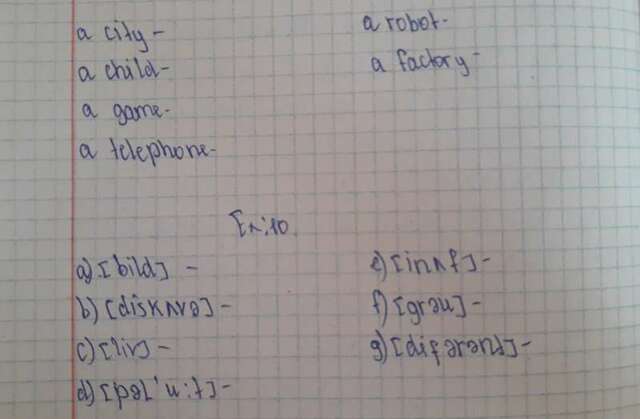 a city -
a child -
a game -
a telephone -
a robot -
a factory -
Ex:10.
a) [bild] -
b) [diskʌvə] -
c) [liv] -
d) [pəl'u:t] -
e) [inʌf] -
f) [grəu] -
g) [difərənt] -